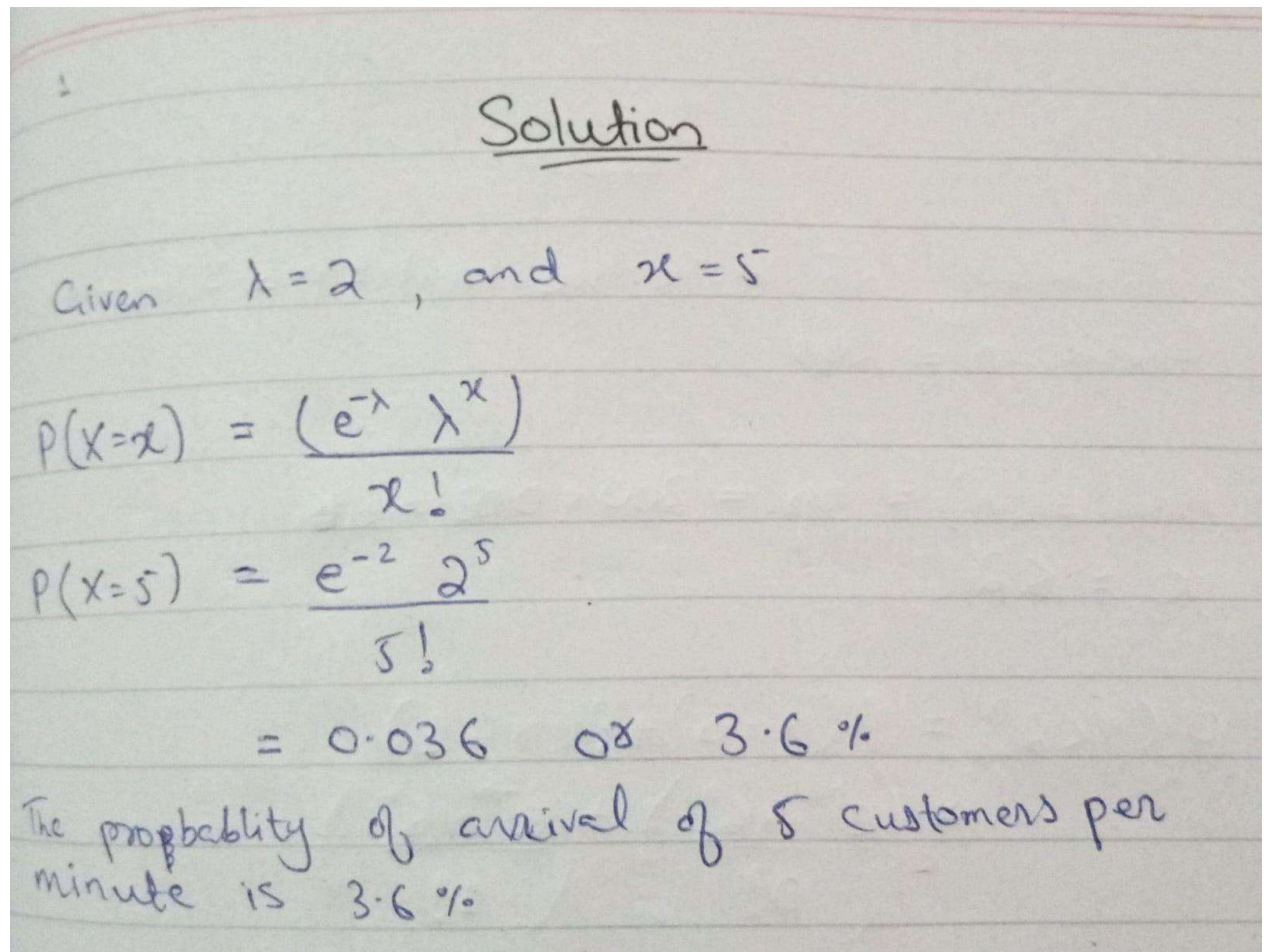 Solution
Given λ = 2 , and x = 5
P(X=x) = (e^-λ λ^x)
x!
P(X=5) = e^-2 2^5
5!
= 0.036 or 3.6 %
The propbablity of arrival of 5 customers per
minute is 3.6 %